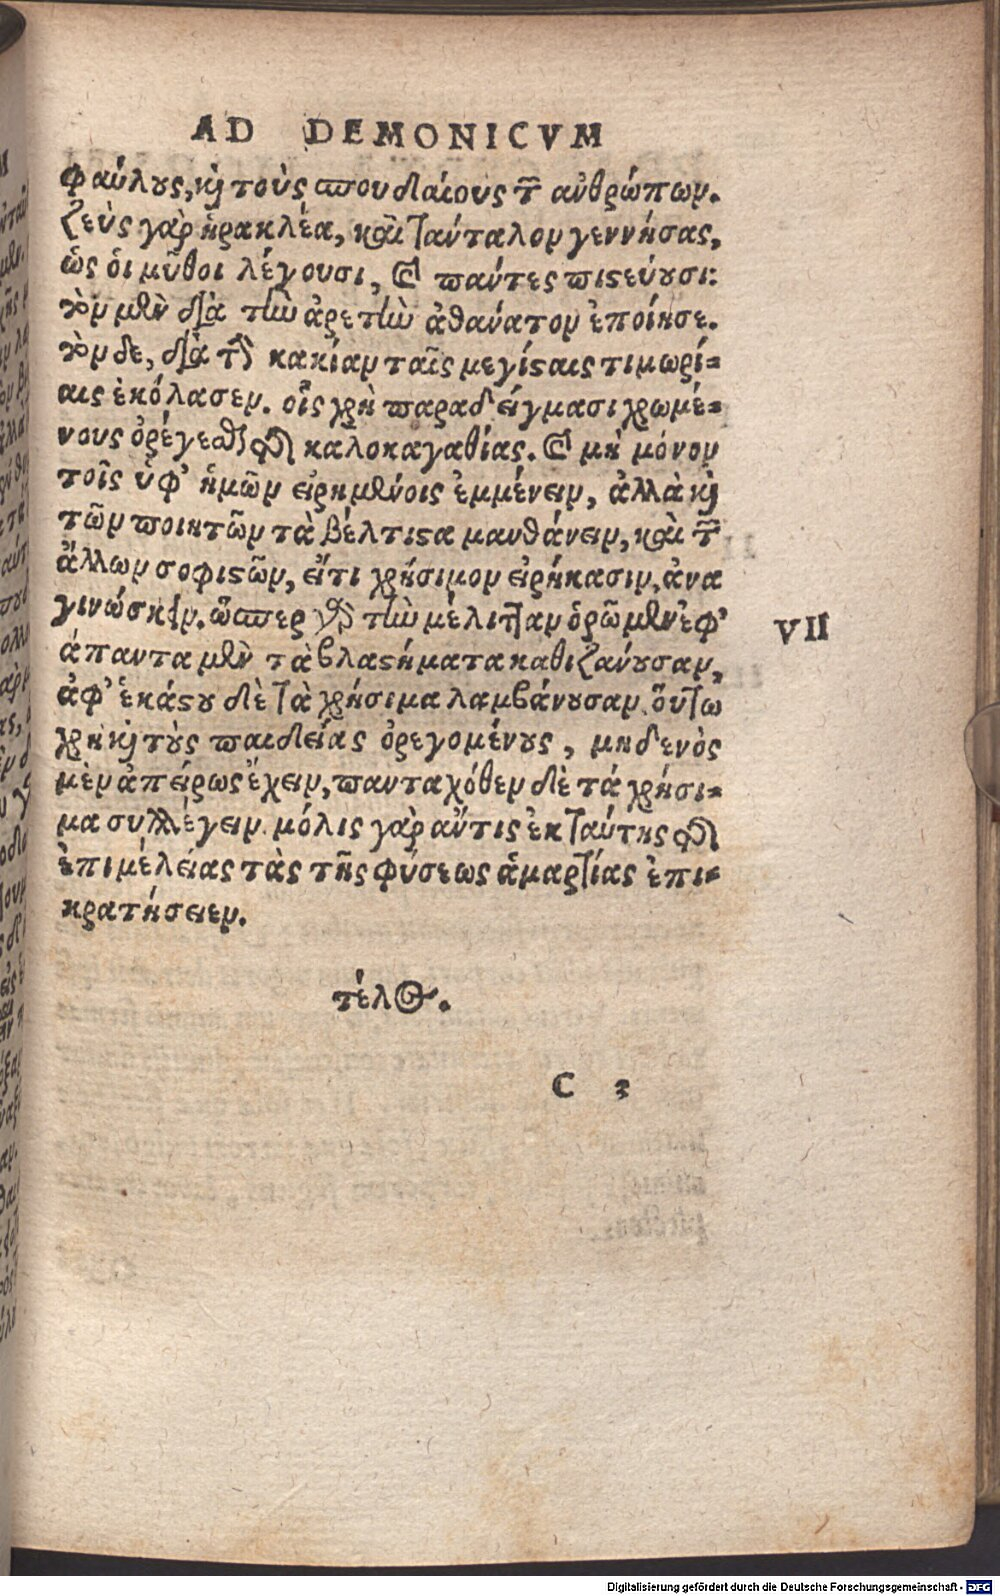 AD DEMONICVM
φαύλους, καὶ τοὺς σπουδαίους τῶν ἀνθρώπων.
ζεὺς γὰρ ἡρακλέα, καὶ τάνταλον γεννήσας,
ὡς οἱ μῦθοι λέγουσι, καὶ πάντες πιστεύουσι:
τὸν μὲν διὰ τὴν ἀρετὴν ἀθάνατον ἐποίησε.
τὸν δε, διὰ τὴν κακίαν ταῖς μεγίσταις τιμωρί-
αις ἐκόλασεν. οἷς χρὴ παραδείγμασι χρωμέ-
νους ὀρέγεσθαι τῆς καλοκαγαθίας. καὶ μὴ μόνον
τοῖς ὑφ’ ἡμῶν εἰρημένοις ἐμμένειν, ἀλλὰ καὶ
τῶν ποιητῶν τὰ βέλτιστα μανθάνειν, καὶ τῶν
ἄλλων σοφιστῶν, εἴτι χρήσιμον εἰρήκασιν, ἀνα
γινώσκειν. ὥσπερ γὰρ τὴν μέλιτταν ὁρῶμεν ἐφ’
VII
ἅπαντα μὲν τὰ βλαστήματα καθιζάνουσαν,
ἀφ’ ἑκάστου δὲ τὰ χρήσιμα λαμβάνουσαν. οὕτω
χρὴ καὶ τοὺς παιδείας ὀρεγομένους, μηδενὸς
μὲν ἀπείρως ἔχειν, πανταχόθεν δὲ τά χρήσι-
μα συλλέγειν. μόλις γὰρ ἄν τις ἐκ ταύτης τῆς
ἐπιμελείας τὰς τῆς φύσεως ἁμαρτίας ἐπι-
κρατήσειεν.
τέλος.
C 3
Digitalisierung gefördert durch die Deutsche Forschungsgemeinschaft - DFG